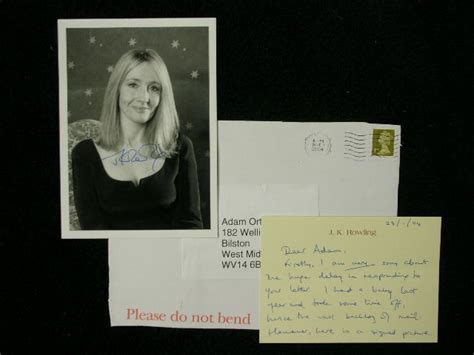 Adam Ort
182 Welli
Bilston
West Mid
WV14 6B
Please do not bend
J. K. Rowling
Dear Adam,
Firstly, I am very sorry about
the huge delay in responding to
your letter. I had a busy last
year and took some time off,
hence the vast backlog of mail.
However, here is a signed picture